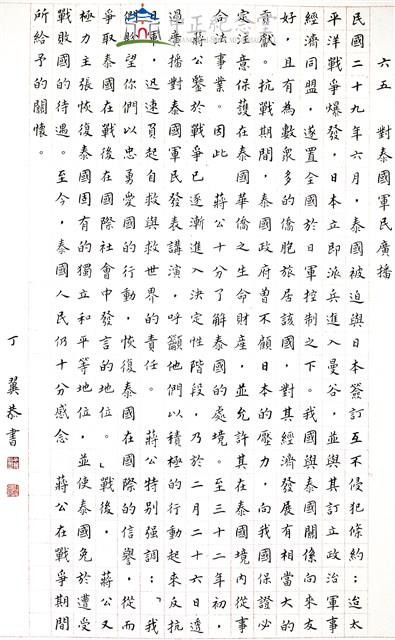 六五 對泰國軍民廣播
民國二十九年六月，泰國被迫與日本簽訂互不侵犯條約；迨太
平洋戰爭爆發，日本立即派兵進入曼谷，並與其訂立政治軍事
經濟同盟，遂置全國於日軍控制之下。我國與泰國關係向來友
好，且有為數眾多的僑胞旅居該國，對其經濟發展有相當大的
貢獻。抗戰期間，泰國政府曾不顧日本的壓力，向我國保證必
定注意保護在泰國華僑之生命財產，並允許其在泰國境內從事
合法事業。因此 蔣公十分了解泰國的處境。至三十二年初，
蔣公鑒於戰爭已逐漸進入決定性階段，乃於二月二十六日透
過廣播對泰國軍民發表講演，呼籲他們以積極的行動起來反抗
日軍，迅速負起自救與救世界的責任。 蔣公特別强調：「我
們盼望你們以忠勇愛國的行動，恢復泰國在國際的信譽，從而
爭取泰國戰後在國際社會中發言的地位。」戰後， 蔣公又
極力主張恢復泰國固有的獨立和平等地位，並使泰國免於遭受
戰敗國的待遇。至今，泰國人民仍十分感念 蔣公在戰爭期間
所給予的關懷。
丁翼恭書